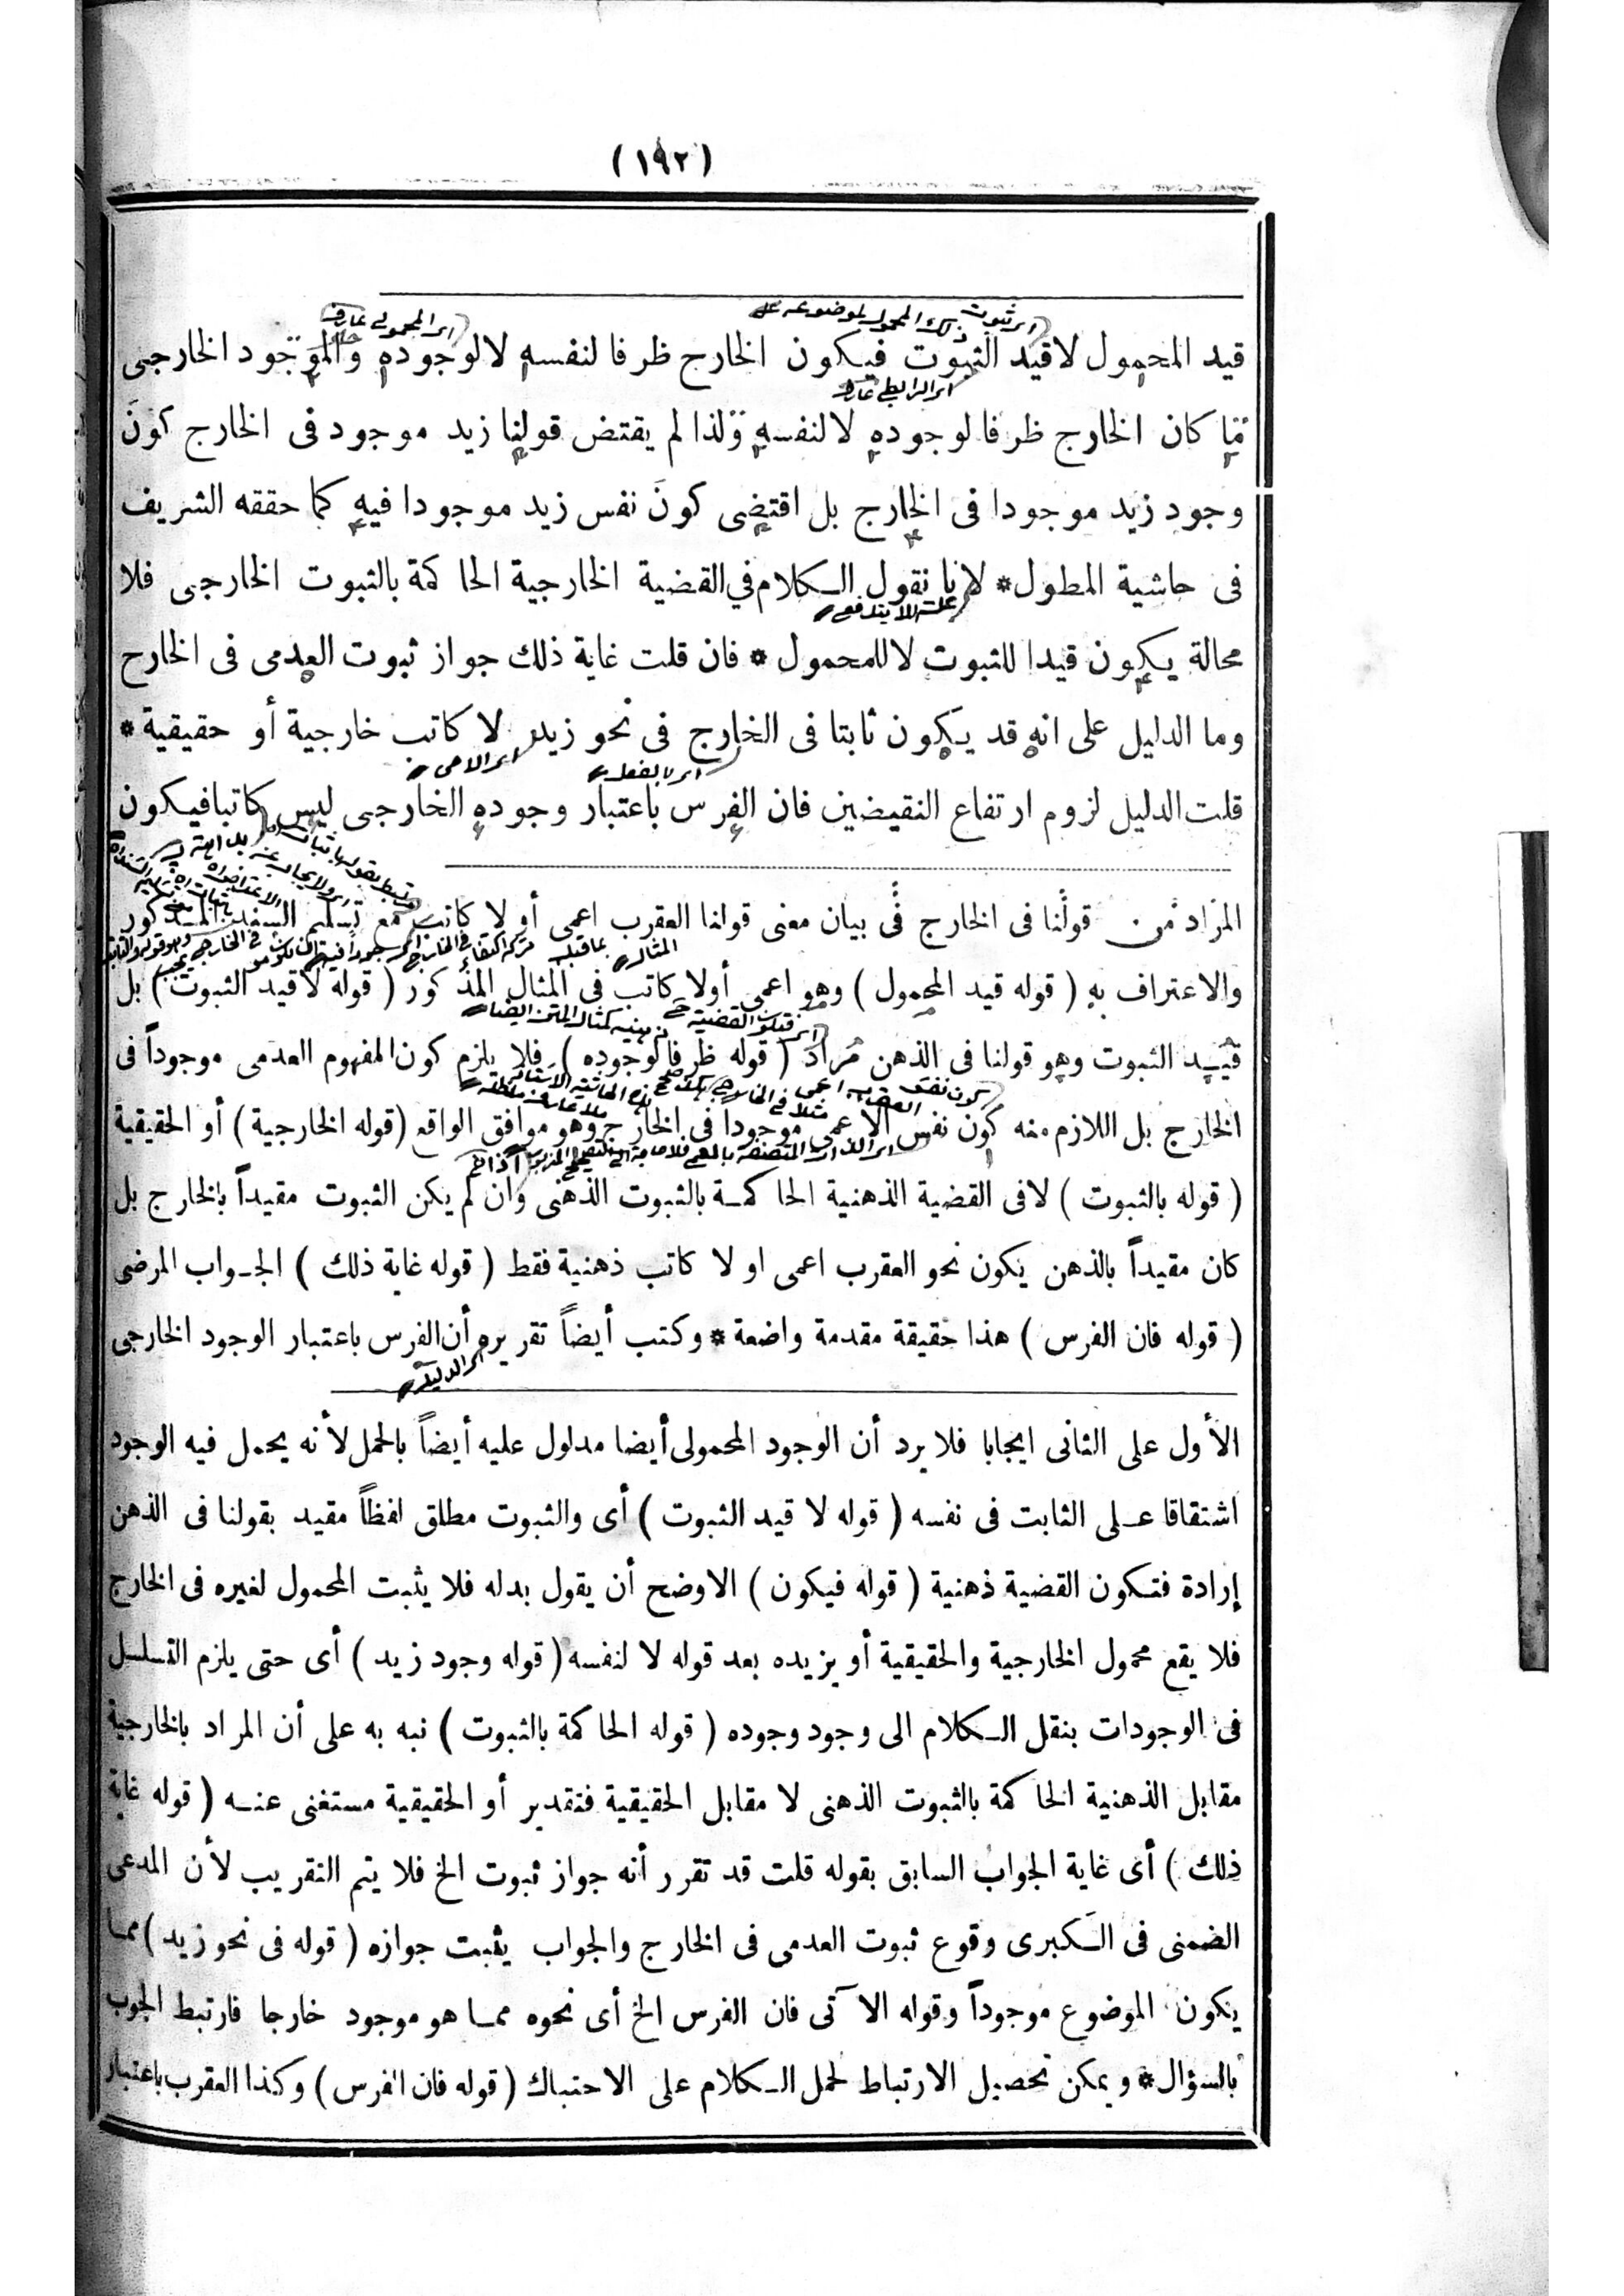 (١٩٢)
قيد المحمول لا قيد الثبوت فيكون الخارج ظرفا لنفسه لا لوجوده والموجود الخارجى
ما كان الخارج ظرفا لوجوده لا لنفسه ولذا لم يقتض قولنا زيد موجود فى الخارج كونَ
وجود زيد موجودا فى الخارج بل اقتضى كونَ نفس زيد موجودا فيه كما حققه الشريف
فى حاشية المطول * لانا نقول الكلام في القضية الخارجية الحاكمة بالثبوت الخارجى فلا
محالة يكون قيدا للثبوت لا للمحمول * فان قلت غاية ذلك جواز ثبوت العدمى فى الخارج
وما الدليل على انه قد يكون ثابتا فى الخارج فى نحو زيد لا كاتب خارجية أو حقيقية *
قلت الدليل لزوم ارتفاع النقيضين فان الفرس باعتبار وجوده الخارجى ليس كاتبا فيكون
المراد من قولنا فى الخارج فى بيان معنى قولنا العقرب اعمى أو لا كاتب مع تسليم السند المذكور
والاعتراف به ( قوله قيد المحمول ) وهو اعمى أو لا كاتب فى المثال المذكور ( قوله لا قيد الثبوت ) بل
قيد الثبوت وهو قولنا فى الذهن مراد ( قوله ظرفا لوجوده ) فلا يلزم كون المفهوم العدمى موجوداً فى
الخارج بل اللازم منه كون نفس الاعمى موجودا فى الخارج وهو موافق الواقع (قوله الخارجية ) أو الحقيقية
( قوله بالثبوت ) لا فى القضية الذهنية الحاكمة بالثبوت الذهنى وان لم يكن الثبوت مقيداً بالخارج بل
كان مقيداً بالذهن يكون نحو العقرب اعمى او لا كاتب ذهنية فقط ( قوله غاية ذلك ) الجواب المرضى
( قوله فان الفرس ) هذا حقيقة مقدمة واضعة * وكتب أيضاً تقريره أن الفرس باعتبار الوجود الخارجى
الأول على الثانى ايجابا فلا يرد أن الوجود المحمولى أيضا مدلول عليه أيضاً بالحمل لأنه يحمل فيه الوجود
اشتقاقا على الثابت فى نفسه ( قوله لا قيد الثبوت ) أى والثبوت مطلق لفظاً مقيد بقولنا فى الذهن
إرادة فتكون القضية ذهنية ( قوله فيكون ) الاوضح أن يقول بدله فلا يثبت المحمول لغيره فى الخارج
فلا يقع محمول الخارجية والحقيقية أو يزيده بعد قوله لا لنفسه ( قوله وجود زيد ) أى حتى يلزم التسلسل
فى الوجودات بنقل الكلام الى وجود وجوده ( قوله الحاكمة بالثبوت ) نبه به على أن المراد بالخارجية
مقابل الذهنية الحاكمة بالثبوت الذهنى لا مقابل الحقيقية فتقدير أو الحقيقية مستغنى عنه ( قوله غاية
ذلك ) أى غاية الجواب السابق بقوله قلت قد تقرر أنه جواز ثبوت الخ فلا يتم التقريب لأن المدعى
الضمنى فى الكبرى وقوع ثبوت العدمى فى الخارج والجواب يثبت جوازه ( قوله فى نحو زيد ) مما
يكون الموضوع موجوداً وقوله الآتى فان الفرس الخ أى نحوه مما هو موجود خارجا فارتبط الجوب
بالسؤال * ويمكن تحصيل الارتباط لحمل الكلام على الاحتباك ( قوله فان الفرس ) وكذا العقرب باعتبار